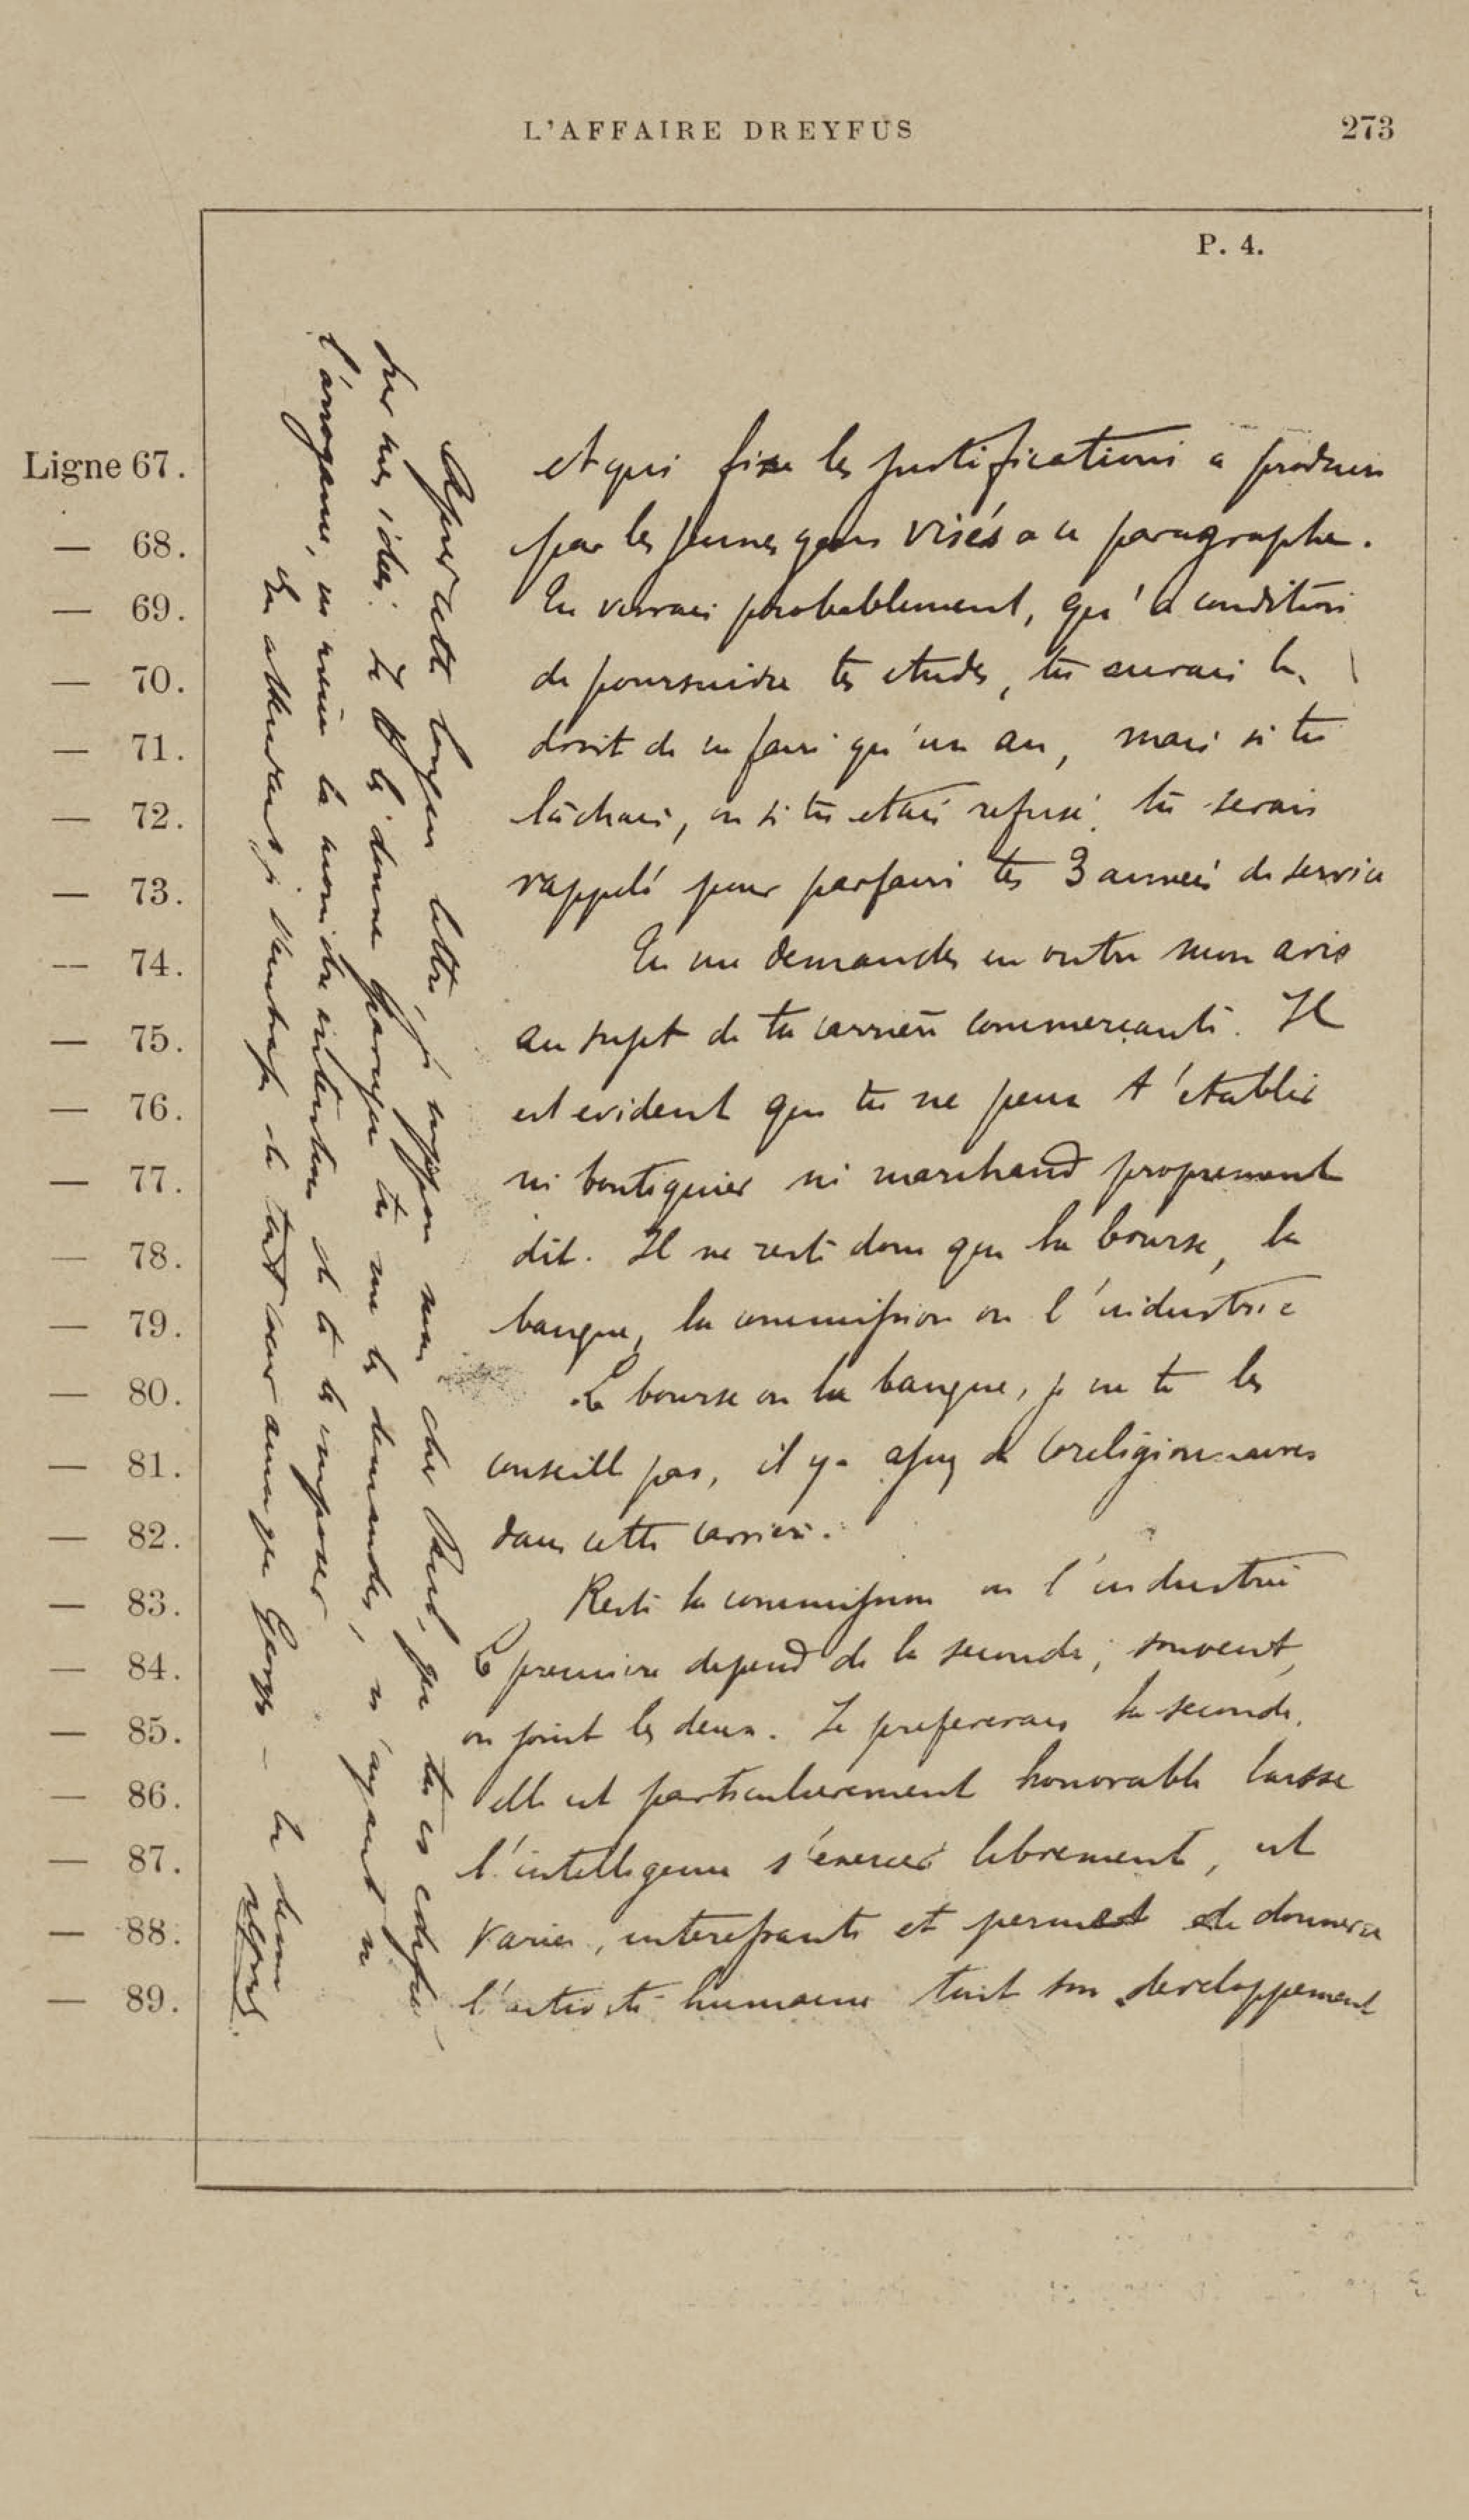 L'AFFAIRE DREYFUS
273
P. 4.
Ligne 67. et qui fixe les justifications a produire
— 68. par les jeunes gens visés a ce paragraphe.
— 69. Tu verrais probablement, qu'a condition
— 70. de poursuivre tes etudes, tu aurais le
— 71. droit de ne faire qu'un an, mais si tu
— 72. lâchais, ou si tu etais refusé, tu serais
— 73. rappelé pour parfaire tes 3 années de service
— 74. Tu me demandes en outre mon avis
— 75. au sujet de ta carrière commerçante. Il
— 76. est evident que tu ne peux t'etablir
— 77. ni boutiquier ni marchand proprement
— 78. dit. Il ne reste donc que la bourse, la
— 79. banque, la commission ou l'industrie
— 80. La bourse ou la banque, je ne te les
— 81. conseille pas, il y a assez de coreligionnaires
— 82. dans cette carrière.
— 83. Reste la commission ou l'industrie
— 84. La premiere depend de la seconde; souvent,
— 85. on joint les deux. Je prefererais la seconde.
— 86. elle est particulierement honorable laisse
— 87. l'intelligence s'exercer librement, est
— 88. variée, interessante et permet de donner a
— 89. l'activité humaine tout son developpement
Apres cette longue lettre, je suppose mon cher Paul, que tu es edifié
sur mes idées. Je te les donne parceque tu me les demandes, n'ayant ni
l'arrogance, ni même la moindre intention de te les imposer
En attendant je t'embrasse de tout coeur ainsi que Georges –